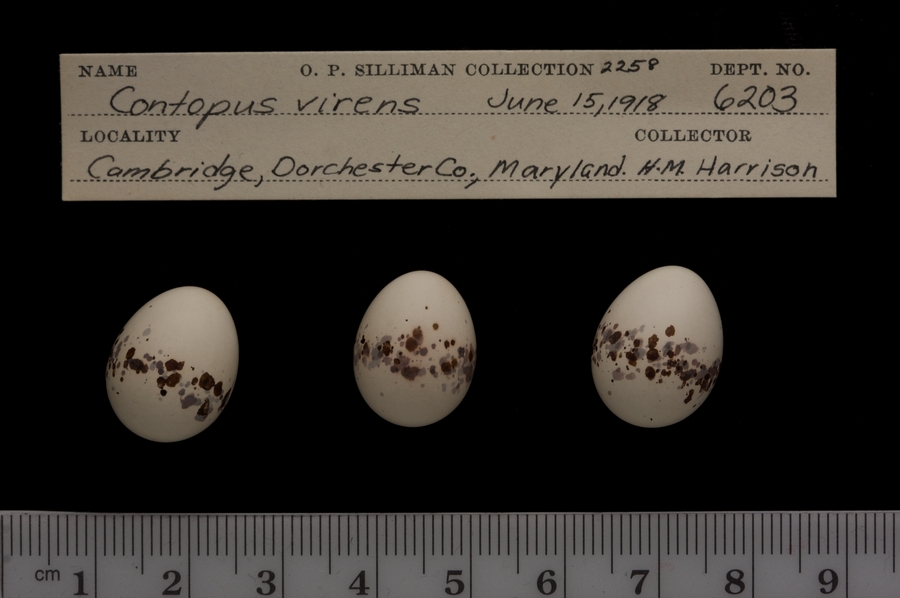 NAME O. P. SILLIMAN COLLECTION 2258 DEPT. NO.
Contopus virens June 15, 1918 6203
LOCALITY COLLECTOR
Cambridge, Dorchester Co., Maryland. H.M. Harrison
cm 1 2 3 4 5 6 7 8 9